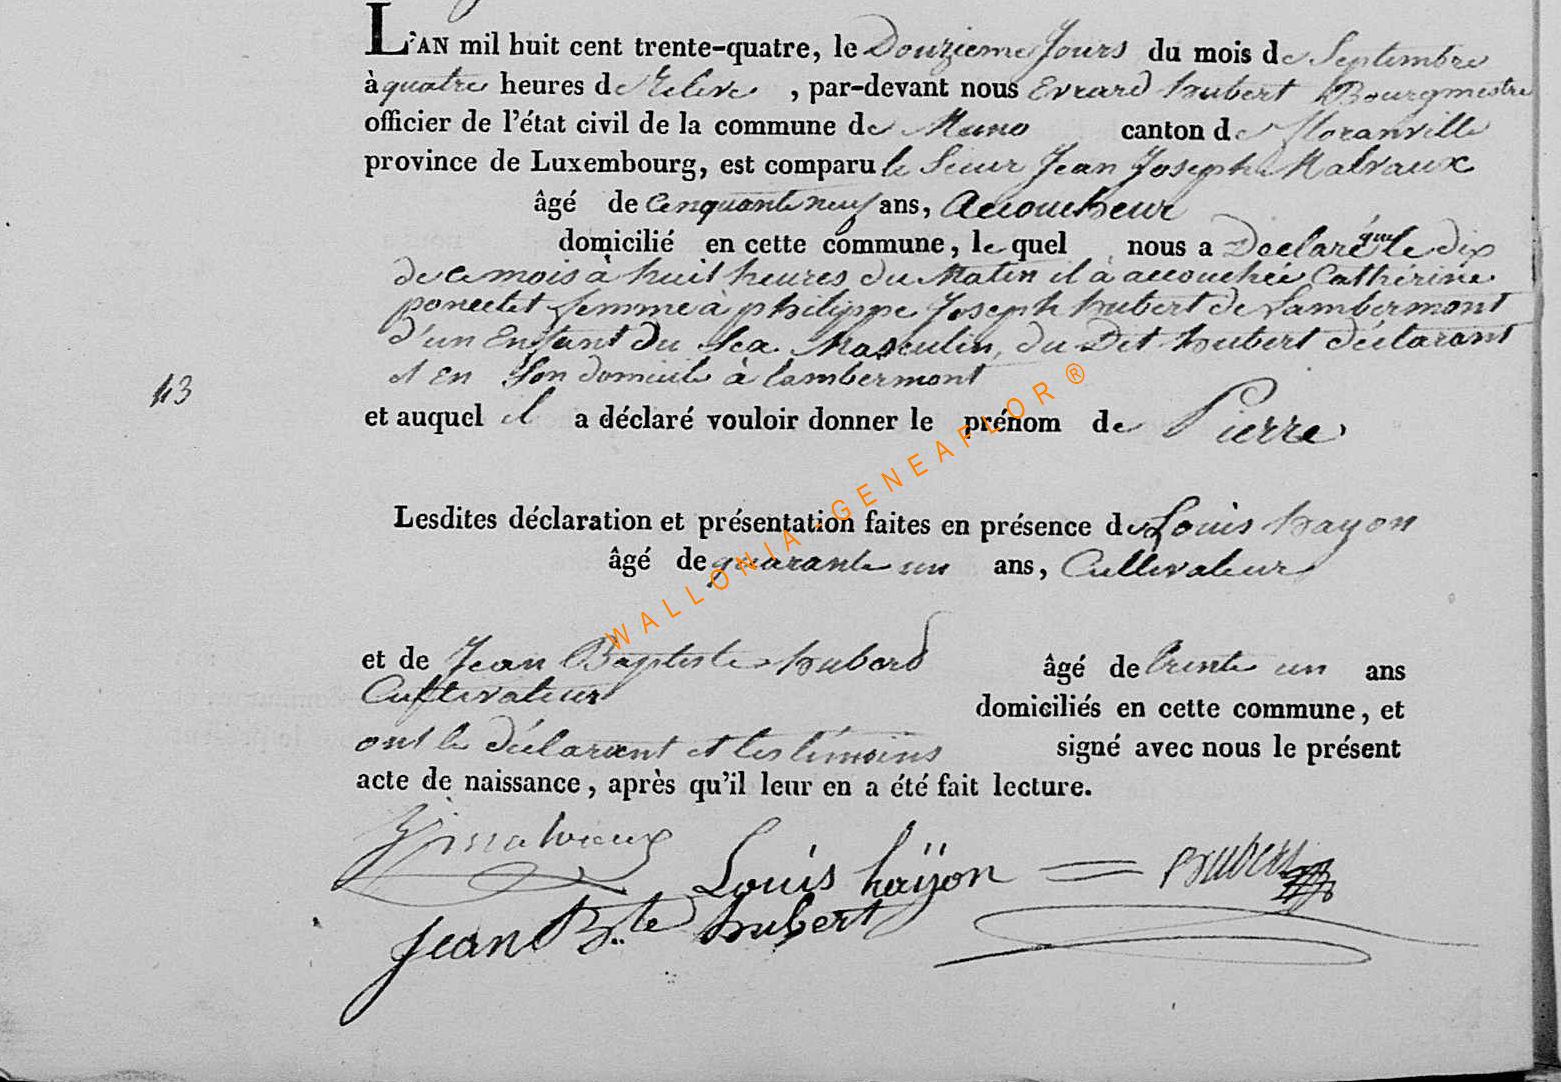 L'AN mil huit cent trente-quatre, le Douzieme Jours du mois de Septembre
à quatre heures de Relevé, par-devant nous Evrard hubert Bourgmestre
officier de l'état civil de la commune de Muno canton de floranville
province de Luxembourg, est comparu le Sieur Jean Joseph Malvaux
âgé de Cinquante neuf ans, Accoucheur
domicilié en cette commune, le quel nous a Declaré que le dix
de ce mois à huit heures du Matin il à accouchée Cathérine
poncelet femme à philippe Joseph hubert de Lambermont
d'un Enfant du Sex Masculin, du Dit hubert déclarant
et en Son domicile à lambermont
13
et auquel il a déclaré vouloir donner le prénom de Pierre
Lesdites déclaration et présentation faites en présence de Louis hayon
âgé de quarante un ans, Cultivateur
et de Jean Baptiste huberd âgé de trente un ans
Cultivateur
domiciliés en cette commune, et
ont le déclarant et les témoins signé avec nous le présent
acte de naissance, après qu'il leur en a été fait lecture.
Louis haÿon
Jean Bte hubert
WALLONIA - GENEAFLOR ®